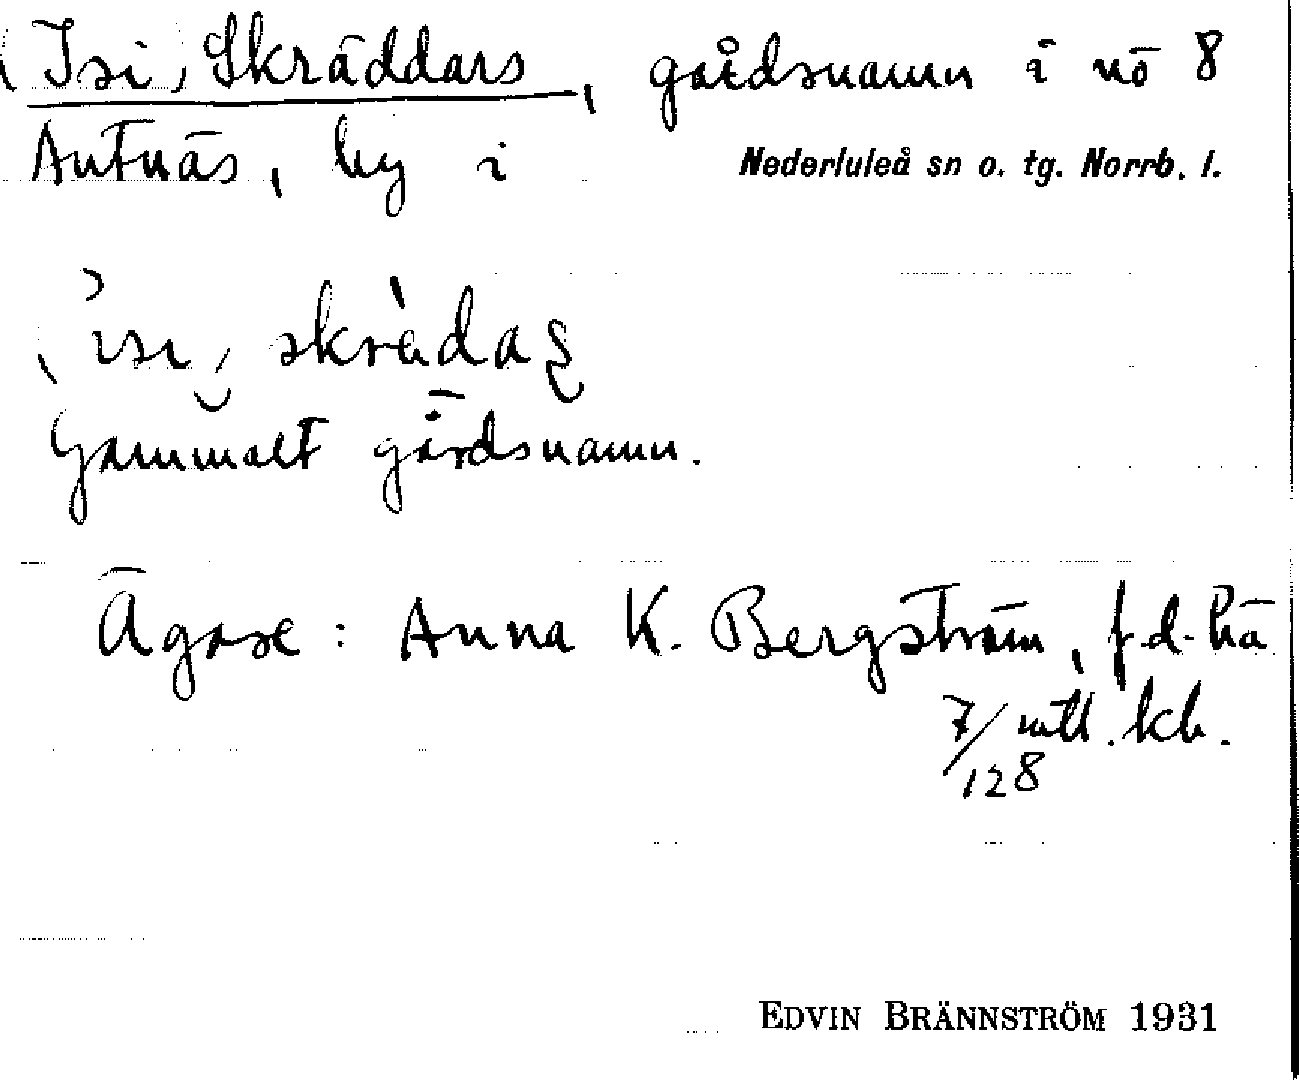 (Isi) Skräddars, gårdsnamn i nö 8
Antnäs, by i Nederluleå sn o. tg. Norrb. l.
Gammalt gårdsnamn.
Ägare: Anna K. Bergström, f.d. hä
7/128 mtl. kb.
EDVIN BRÄNNSTRÖM 1931